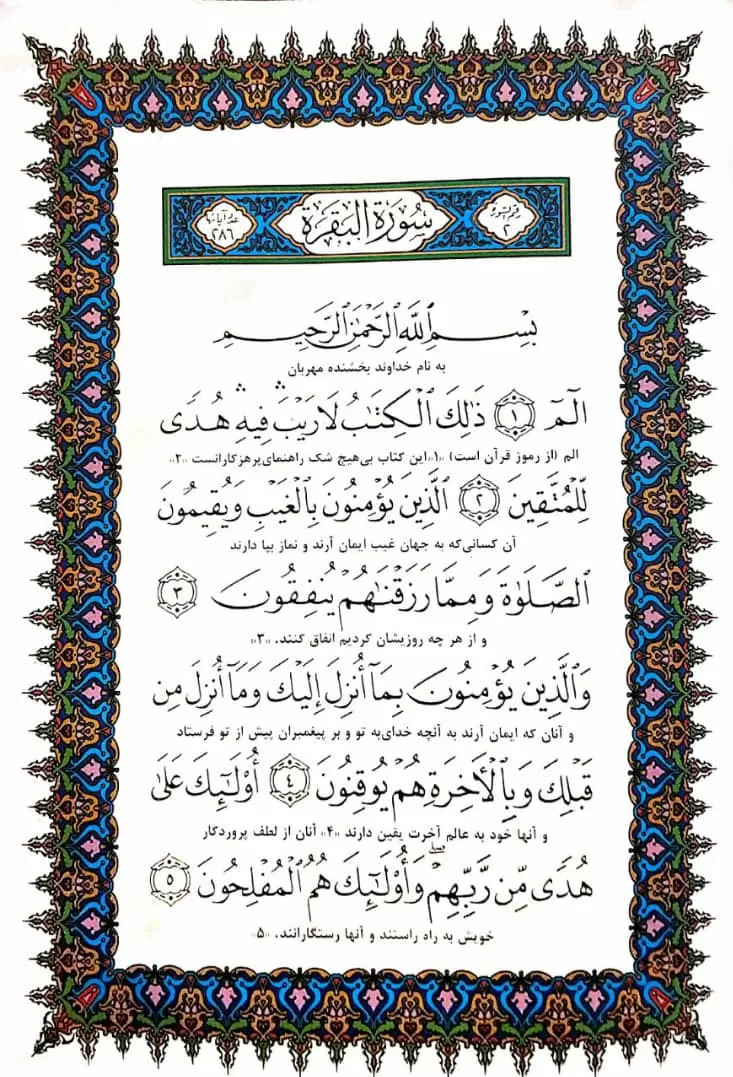 رقم السورة ٢
سُورَةُ الْبَقَرَةِ
عدد آياتها ٢٨٦
بِسْمِ ٱللَّهِ ٱلرَّحْمَٰنِ ٱلرَّحِيمِ
به نام خداوند بخشنده مهربان
الٓمٓ ﴿١﴾ ذَٰلِكَ ٱلْكِتَٰبُ لَا رَيْبَ ۛ فِيهِ ۛ هُدًى
الم (از رموز قرآن است) «۱»این کتاب بی‌هیچ شک راهنمای‌پرهزکارانست «۲»
لِّلْمُتَّقِينَ ﴿٢﴾ ٱلَّذِينَ يُؤْمِنُونَ بِٱلْغَيْبِ وَيُقِيمُونَ
آن کسانی‌که به جهان غیب ایمان آرند و نماز بپا دارند
ٱلصَّلَوٰةَ وَمِمَّا رَزَقْنَٰهُمْ يُنفِقُونَ ﴿٣﴾
و از هر چه روزیشان کردیم انفاق کنند، «۳»
وَٱلَّذِينَ يُؤْمِنُونَ بِمَآ أُنزِلَ إِلَيْكَ وَمَآ أُنزِلَ مِن
و آنان که ایمان آرند به آنچه خدای‌به تو و بر پیغمبران پیش از تو فرستاد
قَبْلِكَ وَبِٱلْأَخِرَةِ هُمْ يُوقِنُونَ ﴿٤﴾ أُوْلَٰٓئِكَ عَلَىٰ
و آنها خود به عالم آخرت یقین دارند «۴» آنان از لطف پروردگار
هُدًى مِّن رَّبِّهِمْ ۖ وَأُوْلَٰٓئِكَ هُمُ ٱلْمُفْلِحُونَ ﴿٥﴾
خویش به راه راستند و آنها رستگارانند، «۵»